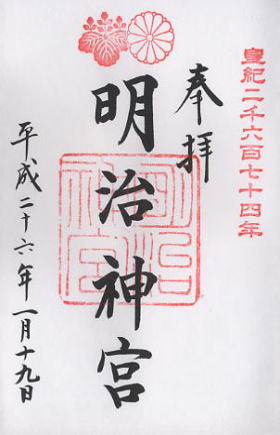 皇紀二千六百七十四年
奉拝
明治神宮
平成二十六年一月十九日
明治神宮